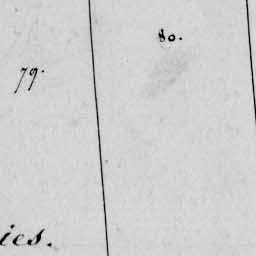 80.
79.
ies.